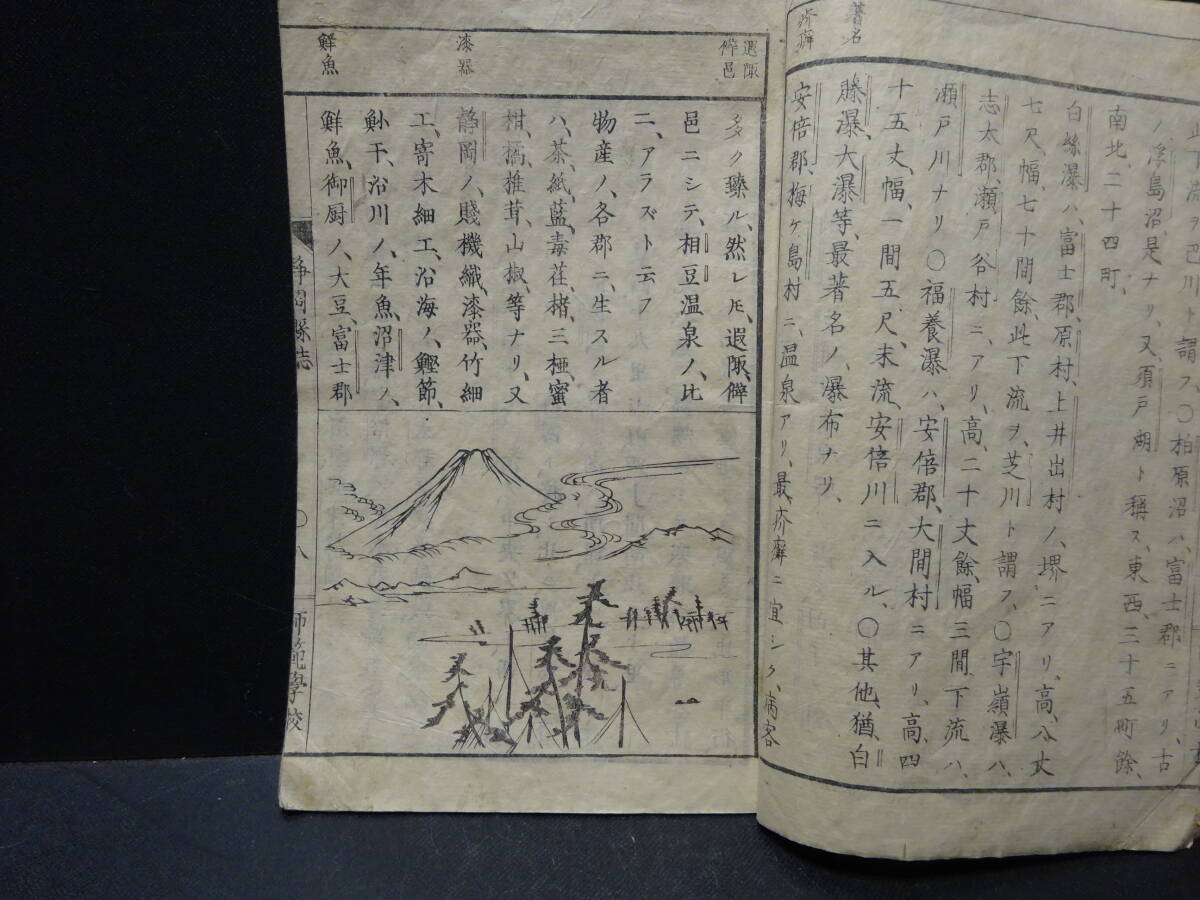 著名
疥癬
ノ、浮島沼、是ナリ、又、須戸湖ト稱ス、東西、二十五町餘、
南北、二十四町、
白絲瀑ハ、富士郡、原村、上井出村ノ、堺ニアリ、高、八丈
七尺、幅、七十間餘、此下流ヲ、芝川ト謂フ、〇宇嶺瀑ハ、
志太郡、瀬戸谷村ニ、アリ、高、二十丈餘、幅三間、下流ハ、
瀬戸川ナリ〇福養瀑ハ、安倍郡、大間村ニアリ、高、四
十五丈、幅、一間五尺、末流、安倍川ニ入ル、〇其他、猶、白
藤瀑、大瀑等、最著名ノ瀑布ナリ、
安倍郡、梅ケ島村ニ、温泉アリ、最、疥癬ニ宜シク、病客
遐陬
僻邑
漆器
鮮魚
多ク臻ル、然レ𪜈、遐陬、僻
邑ニシテ、相豆温泉ノ、比
ニ、アラズト云フ
物産ノ、各郡ニ、生スル者
ハ、茶、紙、藍、毒荏、楮、三椏、蜜
柑、橘、椎茸、山椒、等ナリ、又
静岡ノ、賤機織、漆器、竹細
工、寄木細工、沿海ノ、鰹節、
魥干、沿川ノ、年魚、沼津ノ、
鮮魚、御厨ノ、大豆、富士郡
静岡縣誌
〇八
師範學校